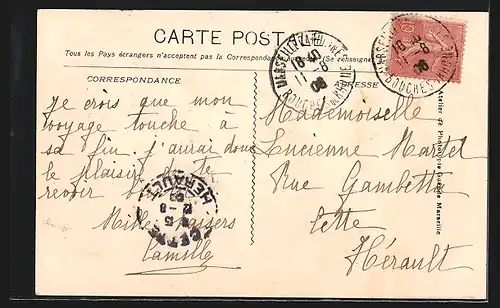 CARTE POSTALE
Tous les Pays étrangers n'acceptent pas la Correspondance (Se renseigner
CORRESPONDANCE
ADRESSE
Je crois que mon
voyage touche à
sa fin. J'aurai donc
le plaisir de te
revoir
Mille baisers
Camille
Mademoiselle
Lucienne Martel
Rue Gambetta
Cette
Hérault
MARSEILLE
16 40
11 - 8
08
BOUCHES DU RHONE
MARSEILLE
16 40
11 - 8
08
BOUCHES DU RHONE
10
CETTE
12 - 8
08
HERAULT
Atelier de Phototypie Guende Marseille